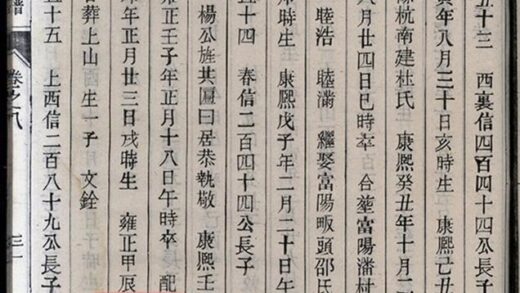 五十三　西裏信四百四十四公長子
寅年八月三十日亥時生　康熙己丑
娶杭南建杜氏　康熙癸丑年十月二
八月廿四日巳時卒　合塟富陽潘村
睦浩　睦滿　繼娶富陽畈頭邵氏
午時生　康熙戊子年二月二十日午
五十四　春信二百四十四公長子
楊公旌其匾曰居恭執敬　康熙王
雍正壬子年正月十八日午時卒　配
年正月廿三日戌時生　雍正甲辰
合葬上山　生一子　文銓
五十五　上西信二百八十九公長子
譜　卷之八　三